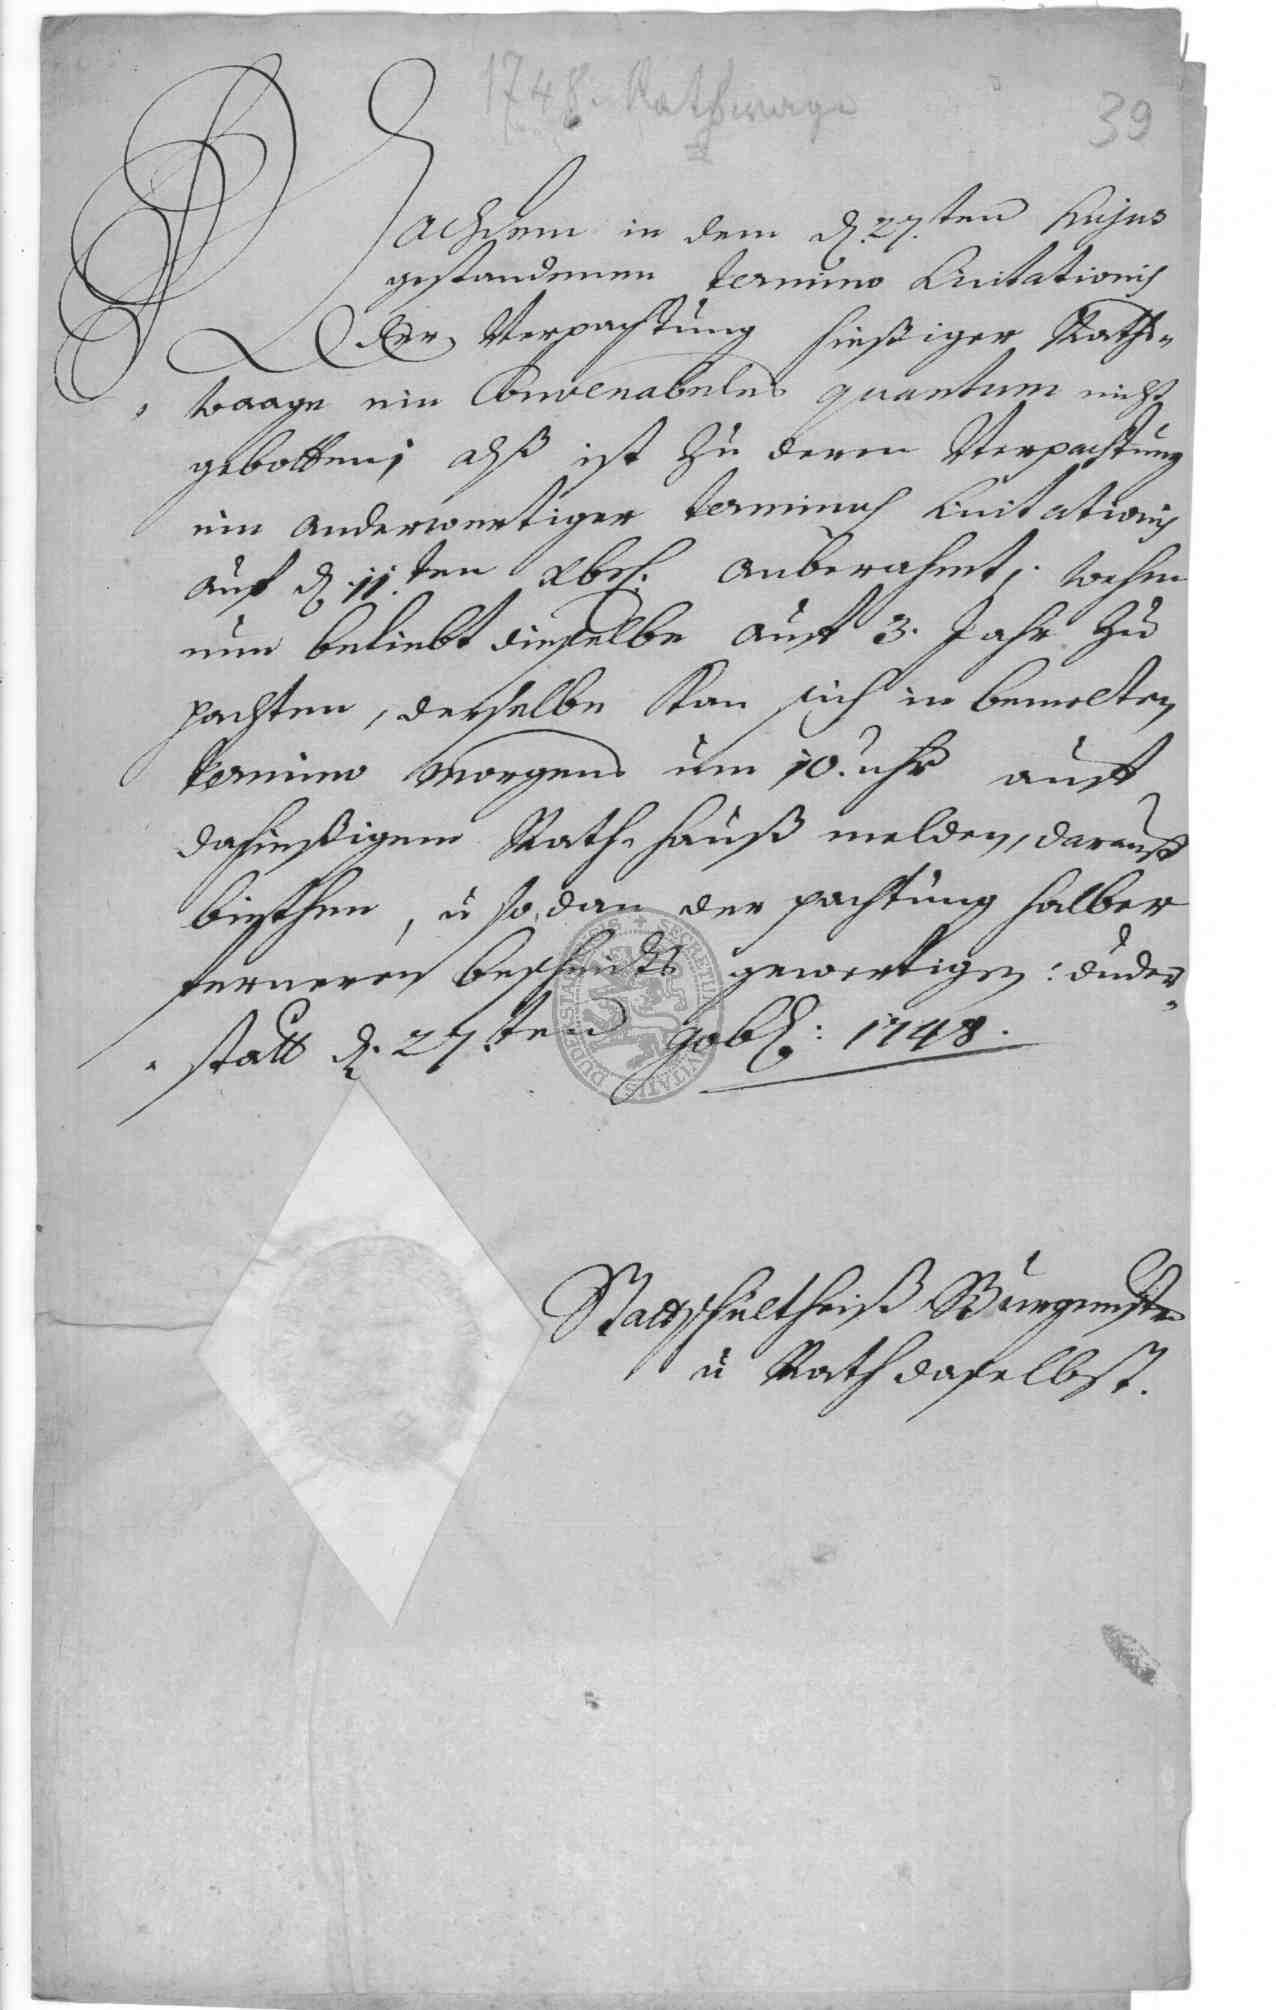 1748. Rathswage
39
Nachdem in dem d. 27.ten hujus
gestandenen termino Licitationis
der Verpachtung hießiger Raths-
waage ein Convenabeles quantum nicht
gebotten; alß ist zu deren Verpachtung
ein anderwertiger terminus Licitationis
auf d. 11.ten xbr. anberahmt; wehm
nun beliebt dieselbe auff 3. Jahr zu
pachten, derselbe kan sich in bemelten
termino morgens um 10. uhr auff
dahießigem Rath-hauß melden, darauff
biethen, u so dan der pachtung halber
ferneren bescheidts gewertigen: Duder-
statt d. 27.ten 9bris: 1748.
SECRETUM CIVITATIS DUDERSTADENSIS
Stattschultheiß Bürgermeister
u Rath daselbst.